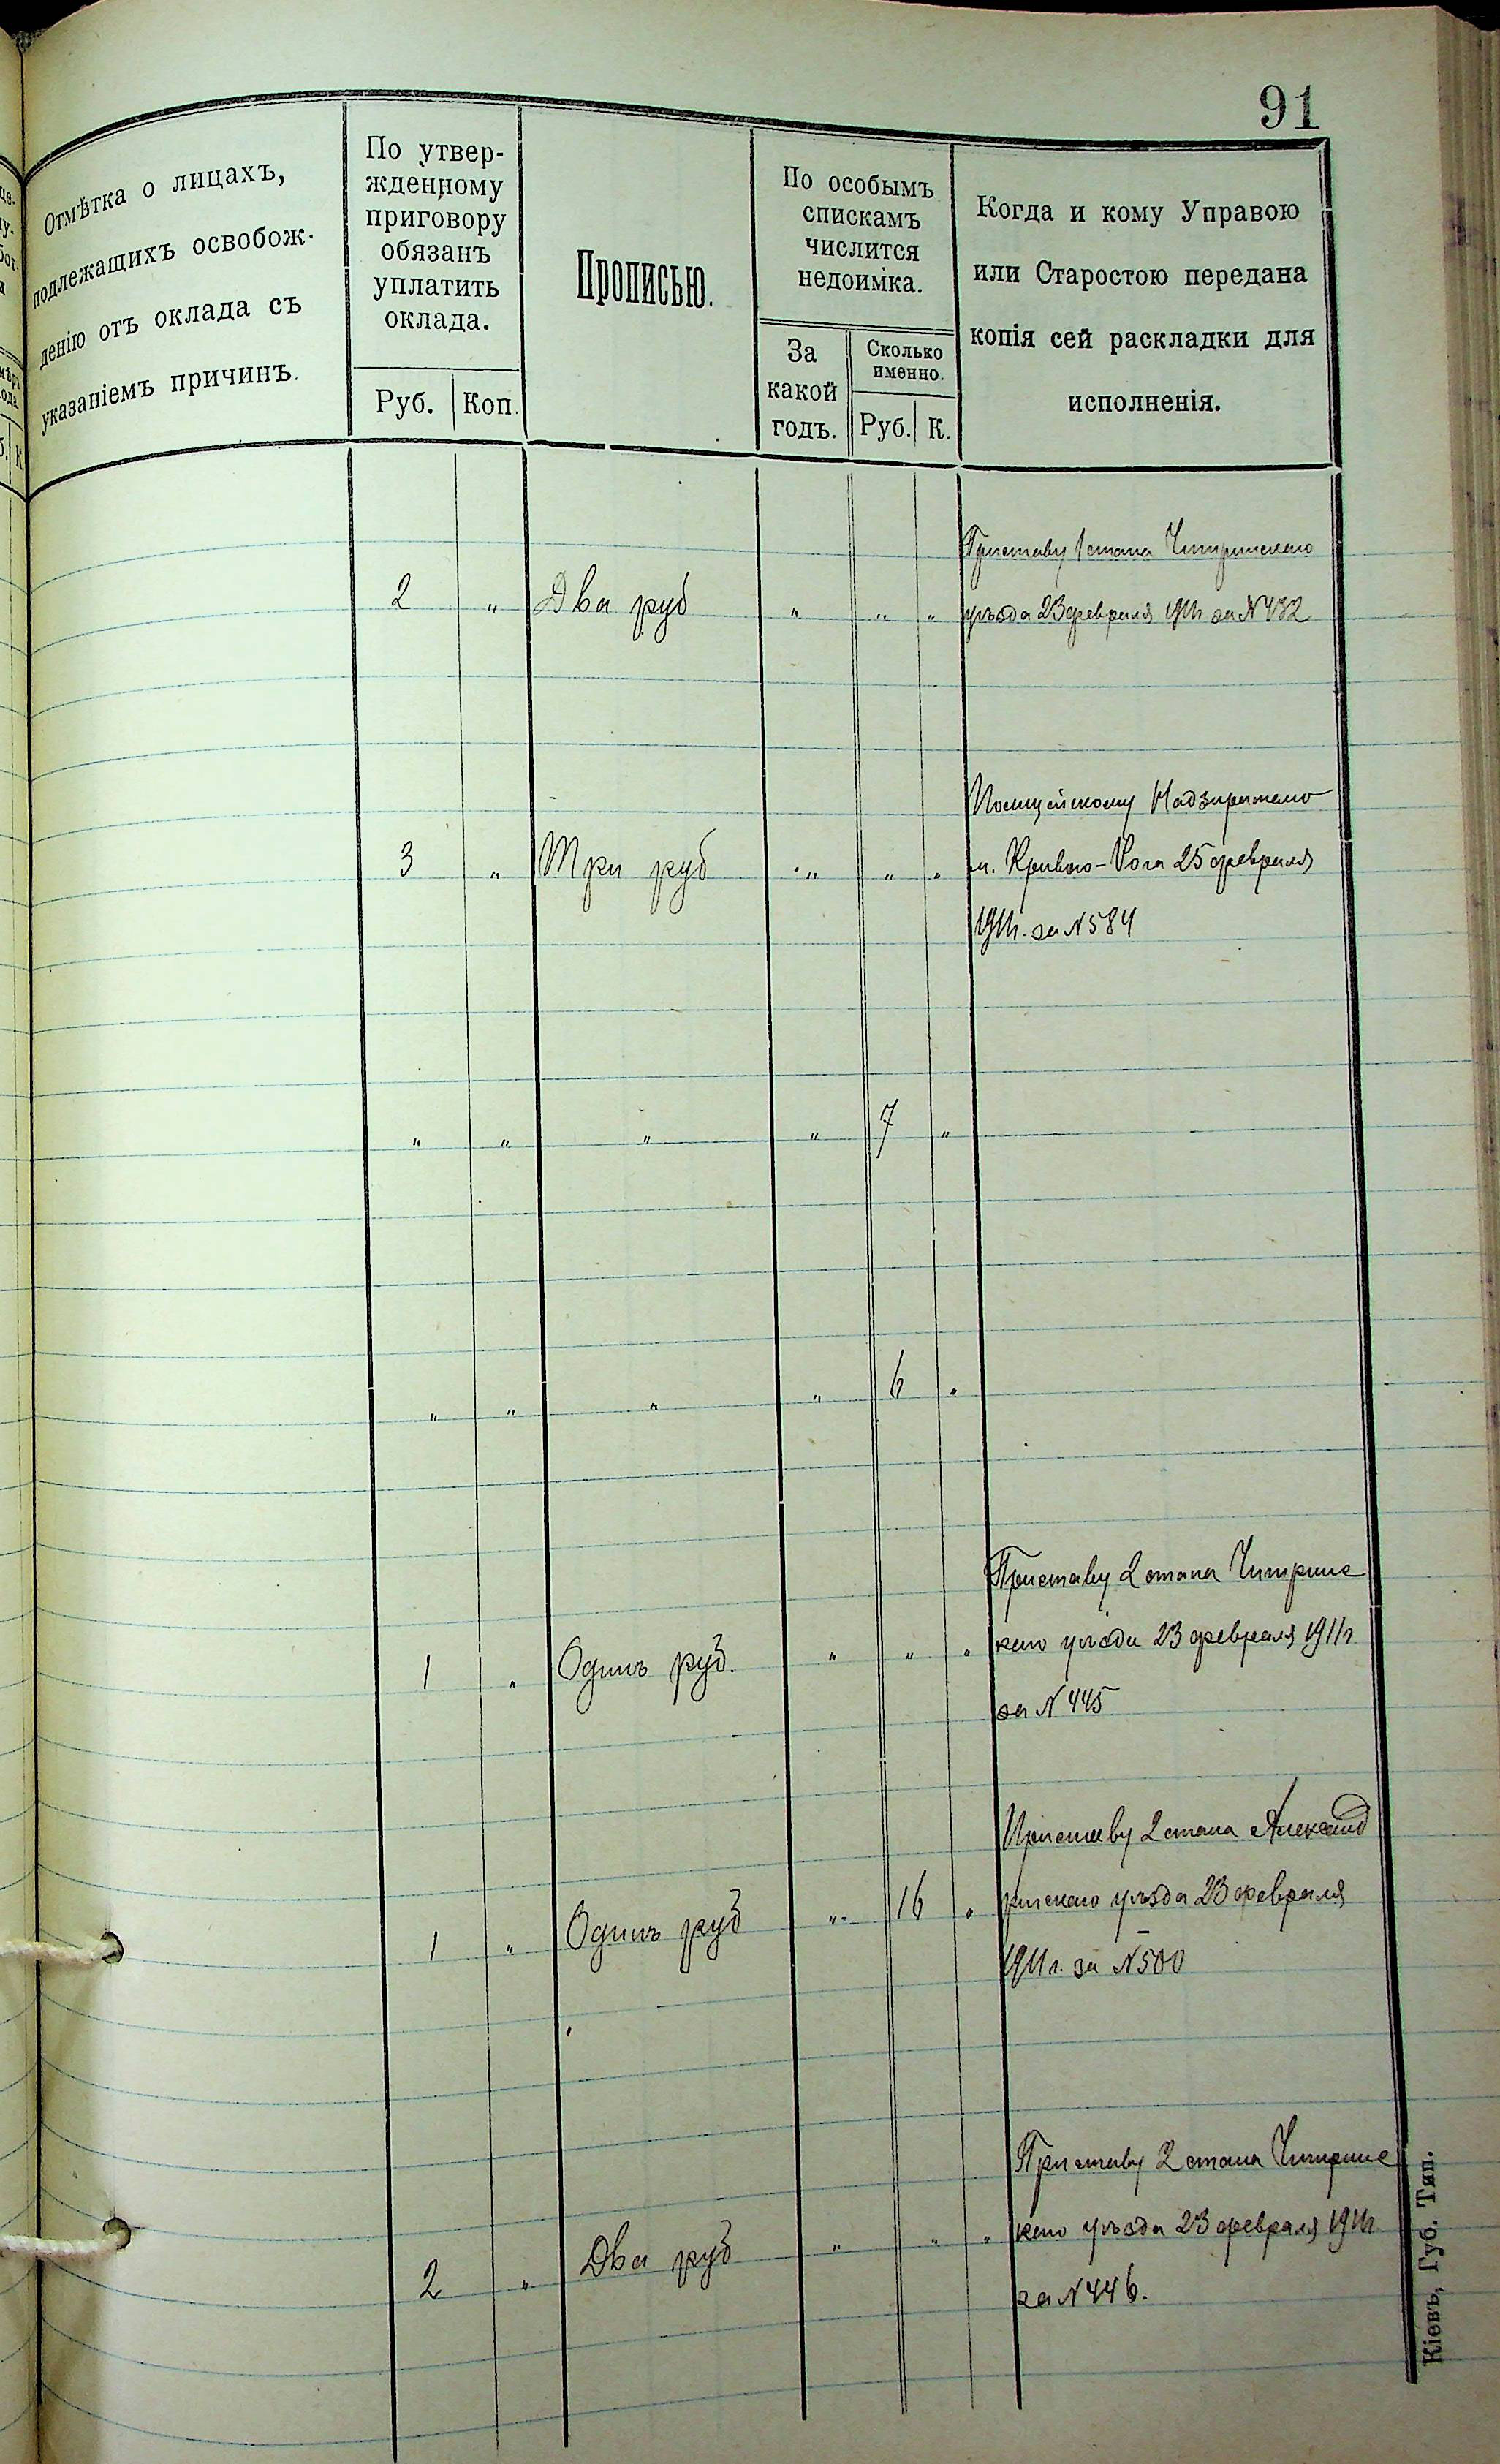 91
Отмѣтка о лицахъ,
подлежащихъ освобож-
денію отъ оклада съ
указаніемъ причинъ.
По утвер-
жденному
приговору
обязанъ
уплатить
оклада.
Руб. Коп.
Прописью.
По особымъ
спискамъ
числится
недоимка.
За
какой
годъ.
Сколько
именно.
Руб. К.
Когда и кому Управою
или Старостою передана
копія сей раскладки для
исполненія.
Приставу 1 стана Чигринскаго
2 " Два руб " " " уѣзда 23 февраля 1911г за N 432
Полицейскому Надзирателю
3 " Три руб " " " м. Кривого-Рога 25 февраля
1911г. за N 584
" " " " 7 "
" " " " 6 "
Приставу 2 стана Чигринс
1 " Одинъ руб. " " " каго уѣзда 23 февраля 1911г
за N 445
Приставу 2 стана Александ
1 " Одинъ руб " 16 " рійскаго уѣзда 23 февраля
1911 г. за N 500
Приставу 2 стана Чигринс
2 " Два руб " " " каго уѣзда 23 февраля 1911г.
за N 446.
Кіевъ, Губ. Тип.